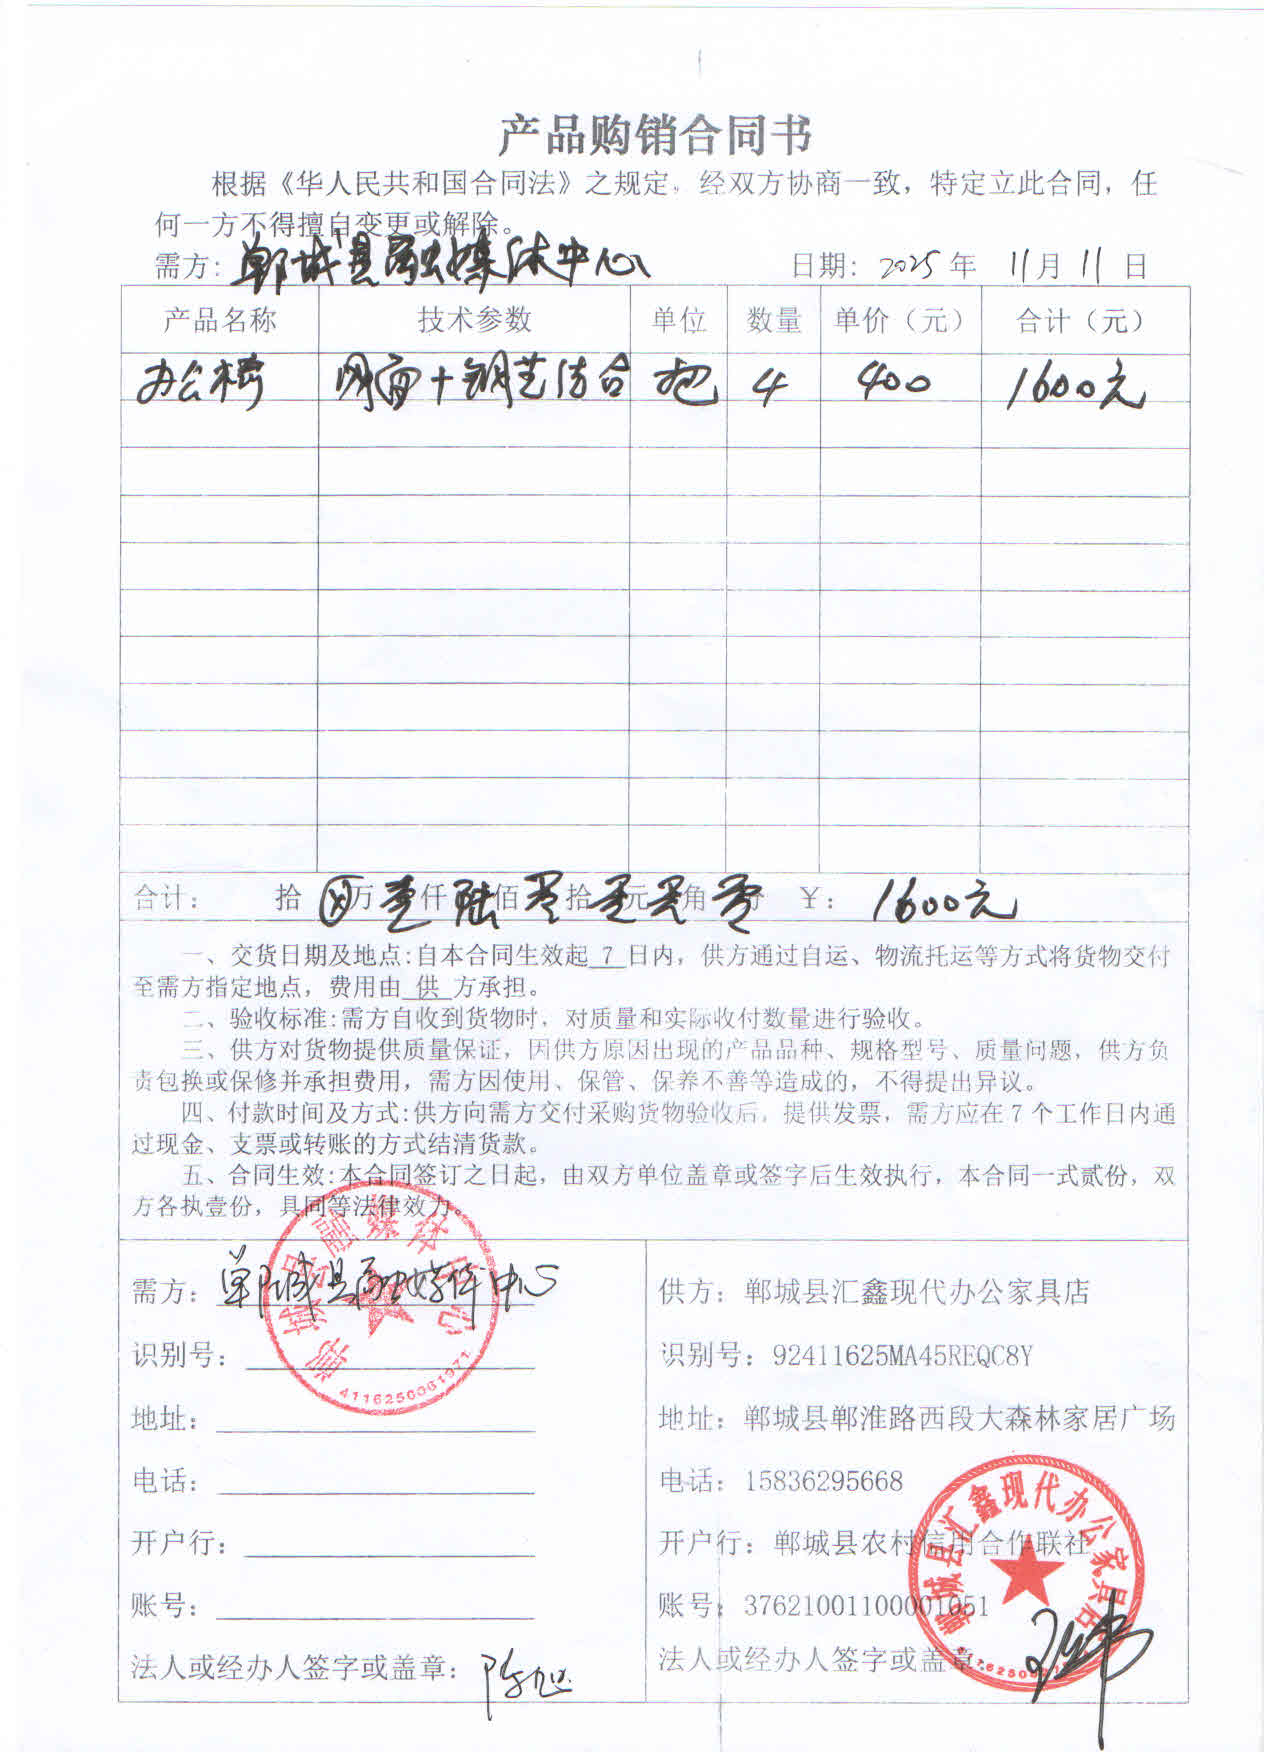 产品购销合同书
根据《华人民共和国合同法》之规定，经双方协商一致，特定立此合同，任
何一方不得擅自变更或解除。
需方：郸城县融媒体中心 日期：2025年 11月 11 日
产品名称 技术参数 单位 数量 单价（元） 合计（元）
办公椅 网面+钢艺结合 把 4 400 1600元
合计： 拾 ⊗万 壹仟 陆佰 零拾 零元 零角 零分 ¥：1600元
一、交货日期及地点:自本合同生效起 7 日内，供方通过自运、物流托运等方式将货物交付
至需方指定地点，费用由 供 方承担。
二、验收标准:需方自收到货物时，对质量和实际收付数量进行验收。
三、供方对货物提供质量保证，因供方原因出现的产品品种、规格型号、质量问题，供方负
责包换或保修并承担费用，需方因使用、保管、保养不善等造成的，不得提出异议。
四、付款时间及方式:供方向需方交付采购货物验收后，提供发票，需方应在7个工作日内通
过现金、支票或转账的方式结清货款。
五、合同生效:本合同签订之日起，由双方单位盖章或签字后生效执行，本合同一式贰份，双
方各执壹份，具同等法律效力。
需方：郸城县融媒体中心
识别号：
地址：
电话：
开户行：
账号：
法人或经办人签字或盖章：
郸城县融媒体中心
4116250061971
供方：郸城县汇鑫现代办公家具店
识别号：92411625MA45REQC8Y
地址：郸城县郸淮路西段大森林家居广场
电话：15836295668
开户行：郸城县农村信用合作联社
账号：37621001100001051
法人或经办人签字或盖章：
郸城县汇鑫现代办公家具店